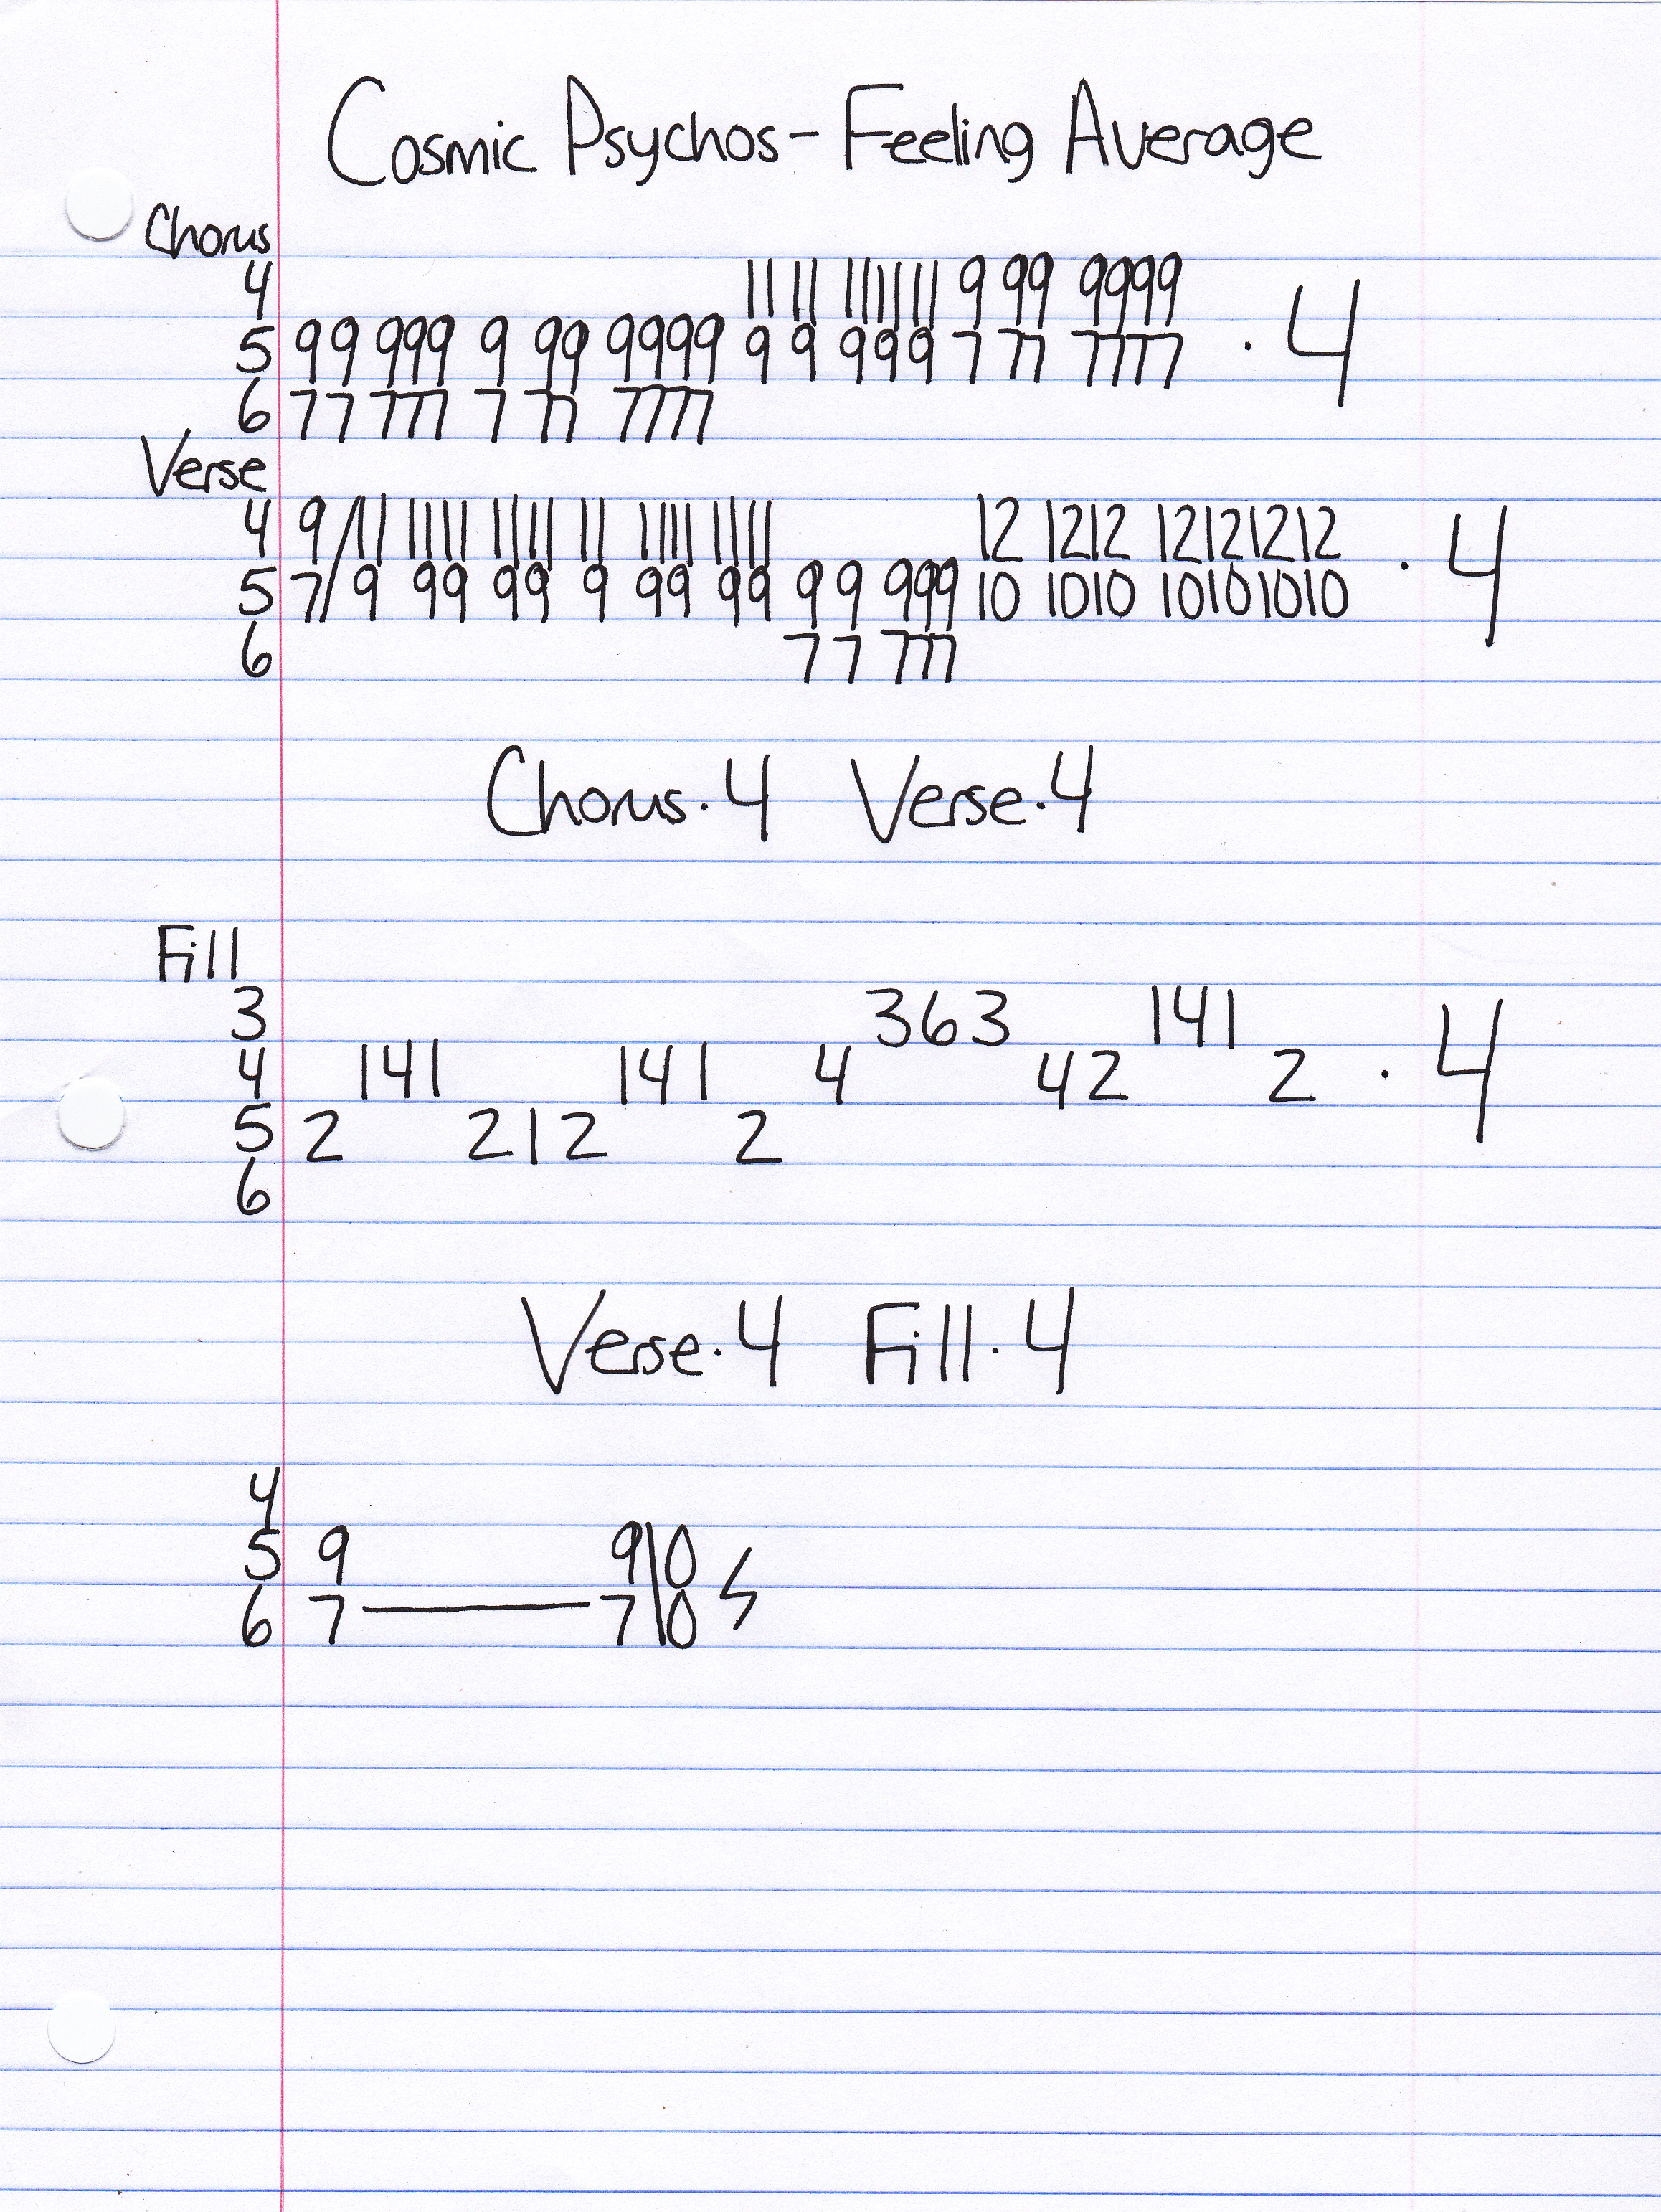 Cosmic Psychos - Feeling Average
Chorus
4 11 11 11 11 11 9 99 9999
5 99 999 9 99 9999 9 9 999 7 77 7777 · 4
6 77 777 7 77 7777
Verse
4 9/11 1111 1111 11 1111 1111 12 1212 12121212
5 7/9 99 99 9 99 99 99 999 10 1010 10101010 · 4
6 77 777
Chorus · 4 Verse · 4
Fill
3 363 141
4 141 141 4 42 2 · 4
5 2 212 2
6
Verse · 4 Fill · 4
4
5 9 9\0
6 7 — 7\0